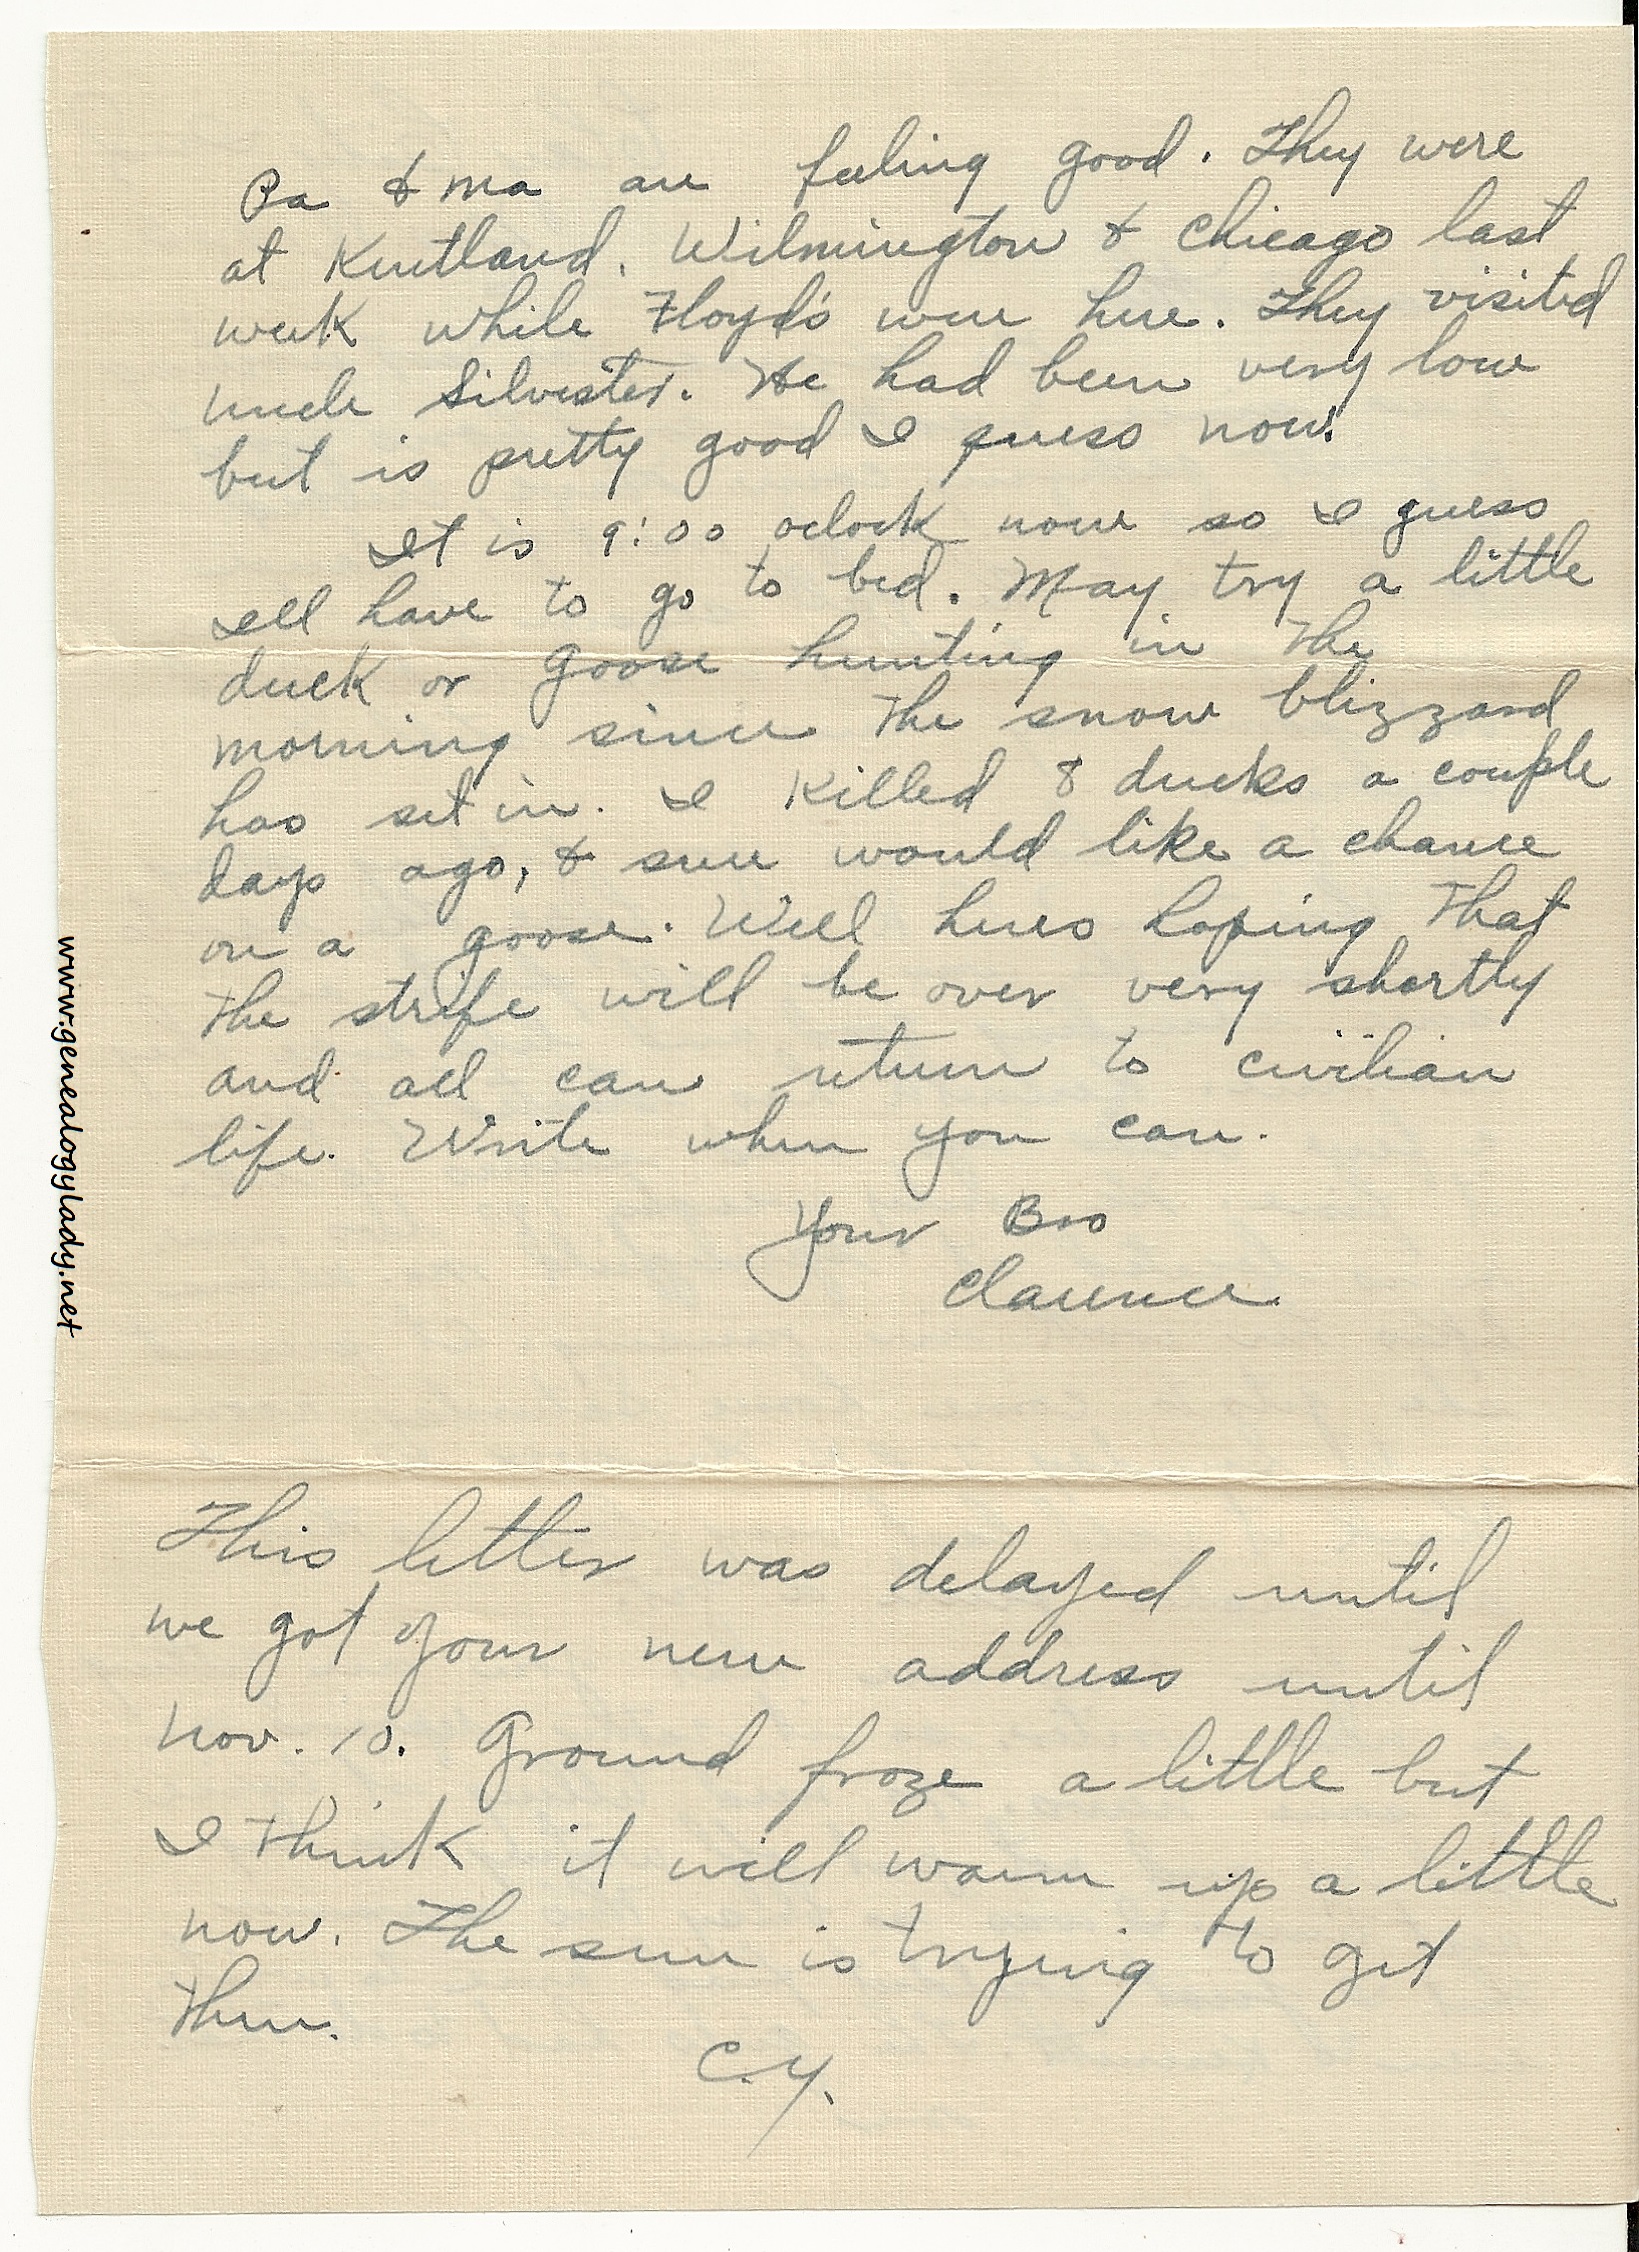 Pa & ma are feeling good. They were
at Kentland, Wilmington & Chicago last
week while Floyd's were here. They visited
uncle Silvester. He had been very low
but is pretty good I guess now.
It is 9:00 oclock now so I guess
Ill have to go to bed. May try a little
duck or goose hunting in the
morning since the snow blizzard
has set in. I killed 8 ducks a couple
days ago, & sure would like a chance
on a goose. Well heres hoping that
the strife will be over very shortly
and all can return to civilian
life. Write when you can.
Your Bro
Clarence.
This letter was delayed until
we got your new address until
Nov. 10. Ground froze a little but
I think it will warm up a little
now. The sun is trying to get
thru.
C.Y.
www.genealogylady.net